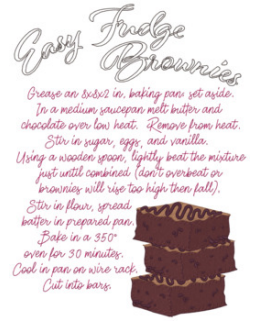 Easy Fudge
Brownies
Grease an 8x8x2 in. baking pan; set aside.
In a medium saucepan melt butter and
chocolate over low heat. Remove from heat.
Stir in sugar, eggs, and vanilla.
Using a wooden spoon, lightly beat the mixture
just until combined (don't overbeat or
brownies will rise too high then fall).
Stir in flour, spread
batter in prepared pan.
Bake in a 350°
oven for 30 minutes.
Cool in pan on wire rack.
Cut into bars.